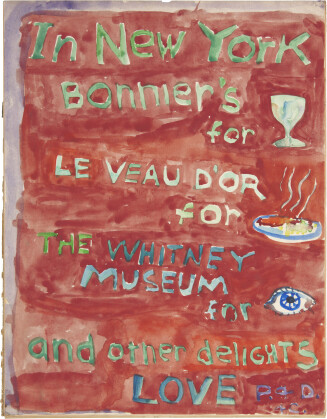 In New York
Bonnier's
for
LE VEAU D'OR
for
THE WHITNEY
MUSEUM
for
and other delights
LOVE P & D.